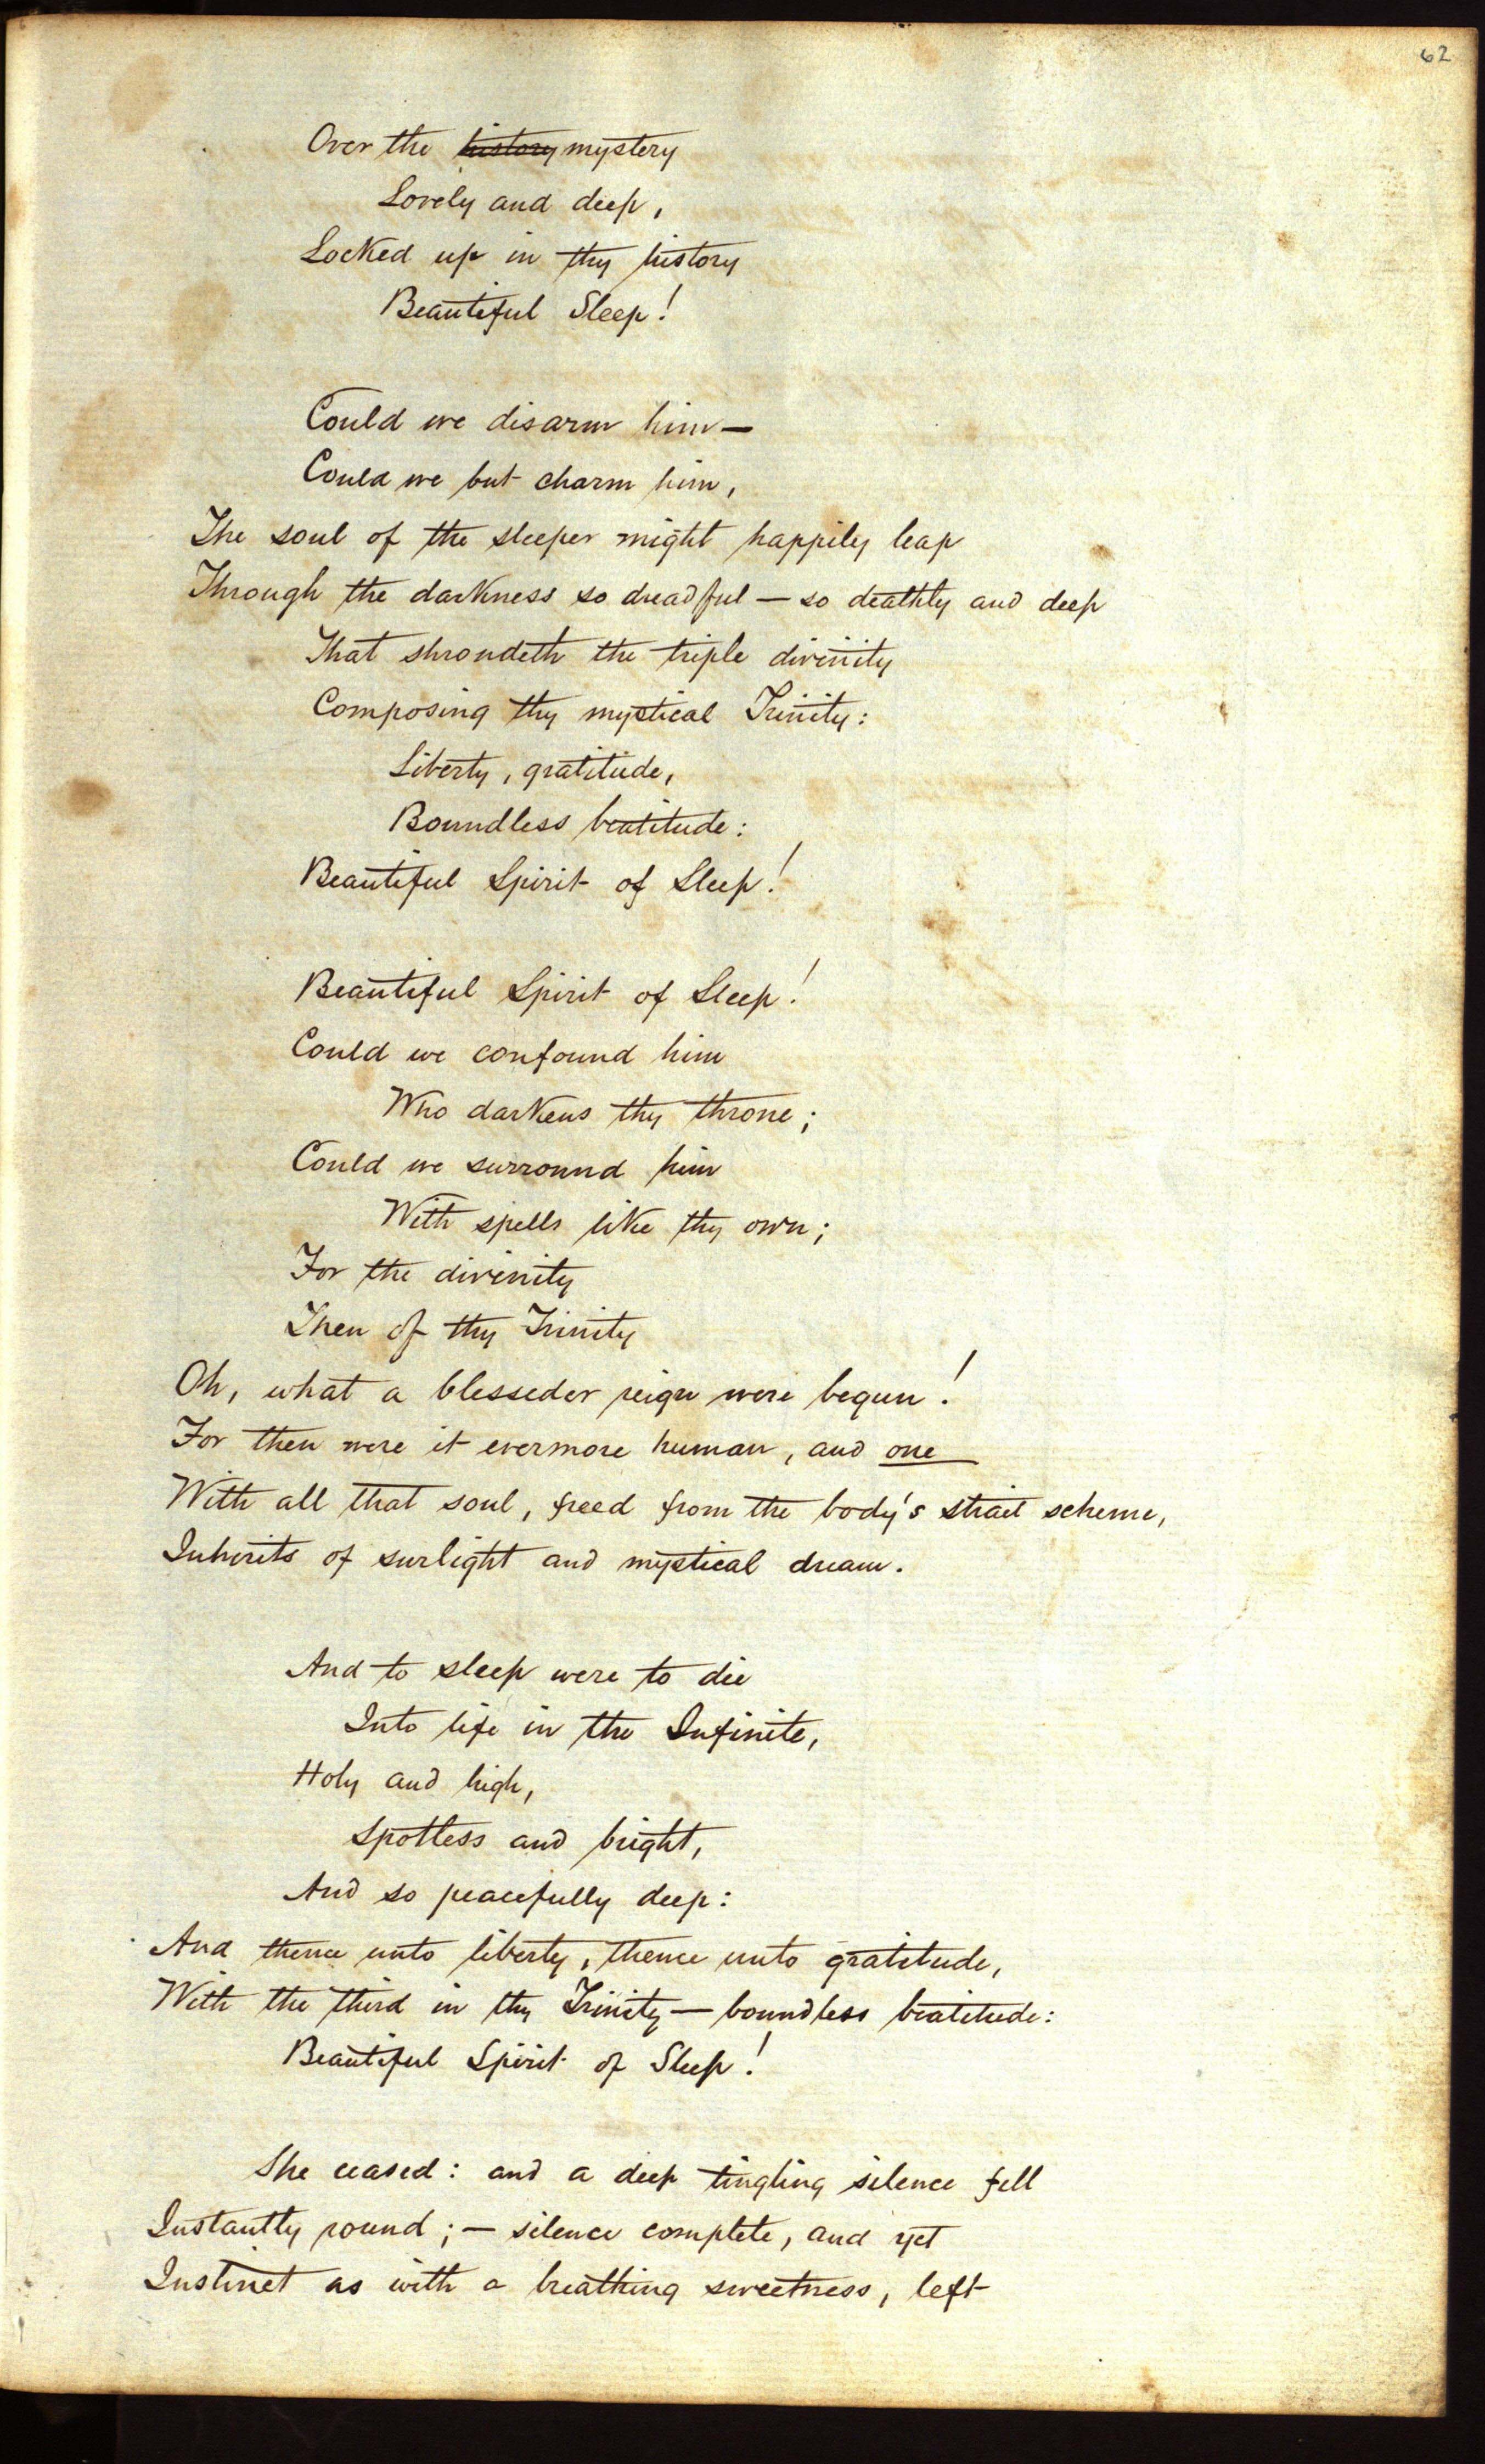 62
Over the history mystery
Lovely and deep,
Locked up in thy history
Beautiful Sleep!
Could we disarm him—
Could we but charm him,
The soul of the sleeper might happily leap
Through the darkness so dreadful — so deathly and deep
That shroudeth the triple divinity
Composing thy mystical Trinity:
Liberty, gratitude,
Boundless beatitude:
Beautiful Spirit of Sleep!
Beautiful Spirit of Sleep!
Could we confound him
Who darkens thy throne;
Could we surround him
With spells like thy own;
For the divinity
Then of thy Trinity
Oh, what a blesseder reign were begun!
For then were it evermore human, and one
With all that soul, freed from the body's strait scheme,
Inherits of surlight and mystical dream.
And to sleep were to die
Into life in the Infinite,
Holy and high,
Spotless and bright,
And so peacefully deep:
And thence unto liberty, thence unto gratitude,
With the third in thy Trinity — boundless beatitude:
Beautiful Spirit of Sleep!
She ceased: and a deep tingling silence fell
Instantly round; — silence complete, and yet
Instinct as with a breathing sweetness, left